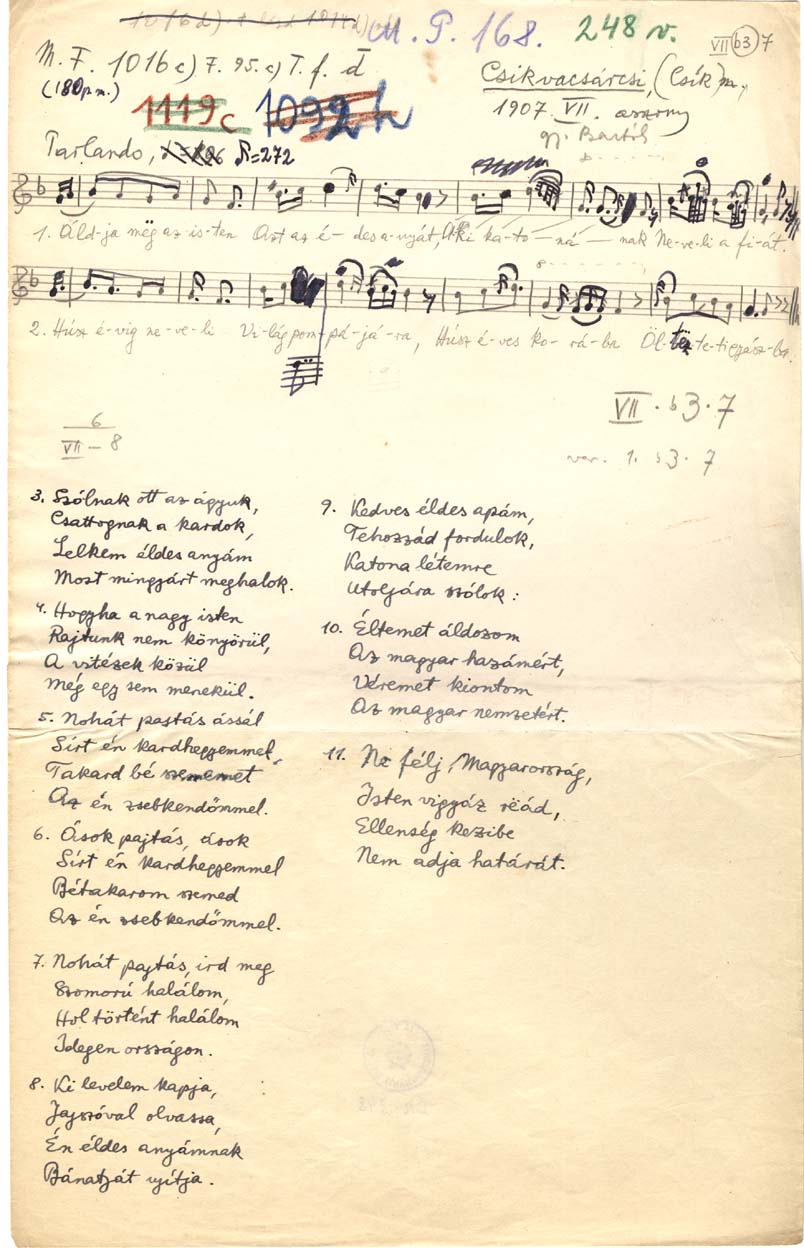 M. P. 168.
248 v.
VII b3 7
M. F. 1016 c) F. 95. c) T. f. d
(180 p. m.)
Csikvacsárcsi, (Csík) m.,
1907. VII. asszony
gy. Bartók
1119 c
1092 h
Parlando, ♪=272
1. Áld-ja mëg az is-ten Azt az é-des a-nyát, Aki ka-to-ná-nak Ne-ve-li a fi-át.
8
2. Húsz é-vig ne-ve-li Vi-lág pom-pá-já-ra, Húsz é-ves ko-rá-ba Öl-töz-te-ti gyász-ba.
VII · b3 · 7
var. 1. b3 · 7
6
VII – 8
3. Szólnak ott az ágyuk,
Csattognak a kardok,
Lelkem éldes anyám
Most mingyárt meghalok.
4. Hogyha a nagy isten
Rajtunk nem könyörül,
A vitézek közül
Még egy sem menekül.
5. Nohát pajtás ássál
Sírt én kardhegyemmel,
Takard bé szememet
Az én zsebkendőmmel.
6. Ások pajtás, ások
Sírt én kardhegyemmel
Bétakarom szemed
Az én zsebkendőmmel.
7. Nohát pajtás, ird meg
Szomorú halálom,
Hol történt halálom
Idegen országon.
8. Ki levelem kapja,
Jajszóval olvassa,
Én éldes anyámnak
Bánatját ujítja.
9. Kedves éldes apám,
Tehozzád fordulok,
Katona létemre
Utoljára szólok:
10. Éltemet áldozom
Az magyar hazámért,
Véremet kiontom
Az magyar nemzetért.
11. Ne félj, Magyarország,
Isten vigyáz rëád,
Ellenség kezibe
Nem adja határát.